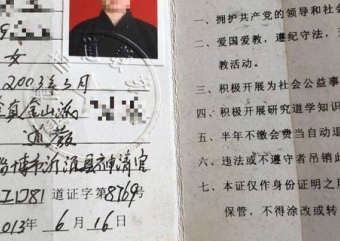 女
2003年5月
全真金山派
道教
淄博市沂源县神清宫
道证字第8769号
2013年6月16日
一、拥护共产党的领导和社会
二、爱国爱教，遵纪守法，
教活动。
三、积极开展为社会公益事
四、积极开展研究道学知识
五、半年不缴会费当自动退
六、违法或不遵守者吊销此
七、本证仅作身份证明之用
保管，不得涂改或转